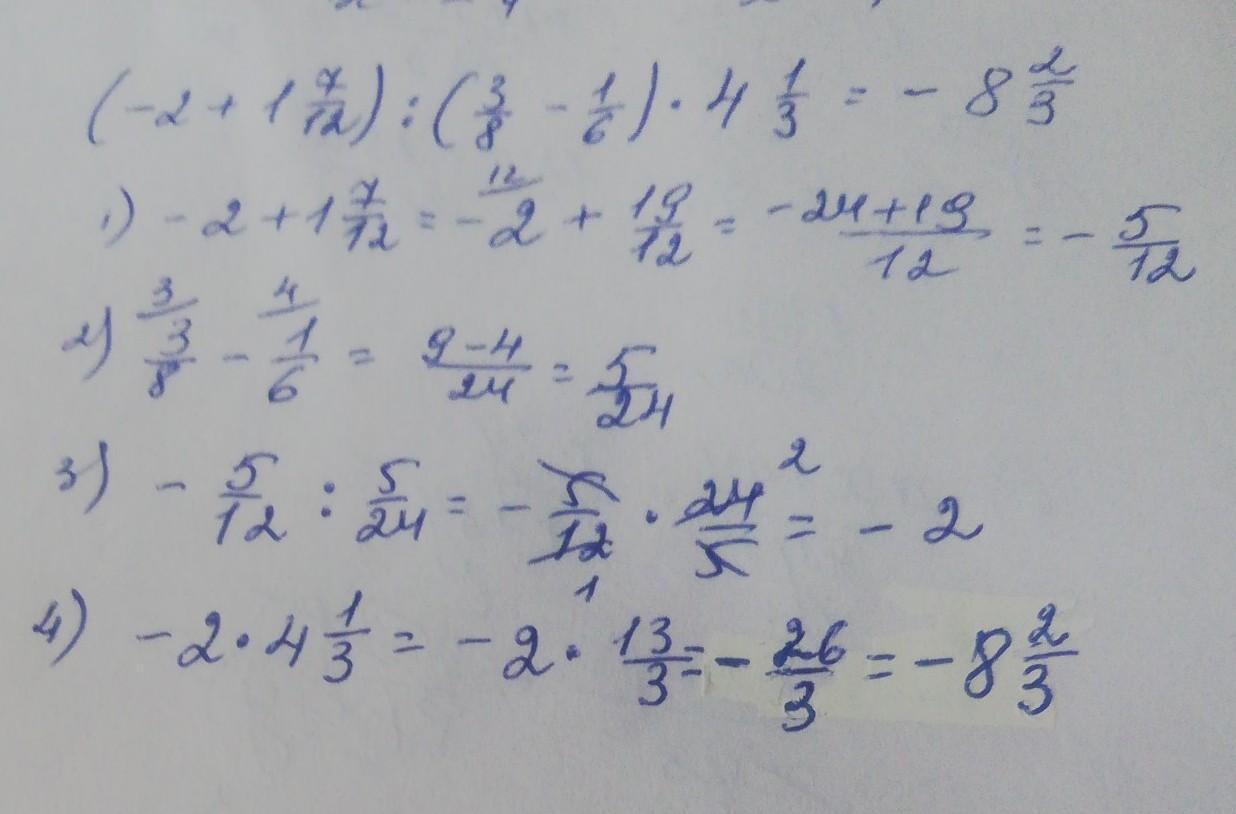 (-2 + 1 7/12) : (3/8 - 1/6) · 4 1/3 = - 8 2/3
1) - 2 + 1 7/12 = - 12/ 2 + 19/12 = -24+19/12 = - 5/12
2) 3/ 3/8 - 4/ 1/6 = 9-4/24 = 5/24
3) - 5/12 : 5/24 = - 5/12 1 · 24/5 2 = - 2
4) - 2 · 4 1/3 = - 2 · 13/3 = - 26/3 = - 8 2/3